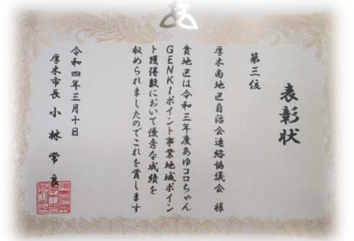 表彰状
第三位
厚木南地区自治会連絡協議会 様
貴地区は令和三年度あゆコロちゃん
GENKIポイント事業地域ポイン
ト獲得数において優秀な成績を
収められましたのでこれを賞します
令和四年三月十日
厚木市長 小林常良